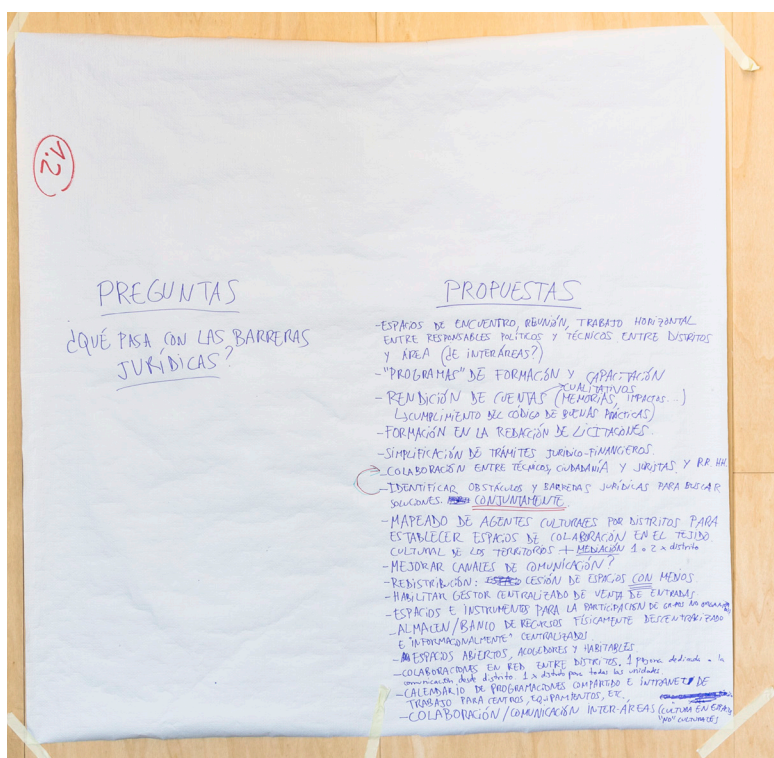 1.2
PREGUNTAS
¿QUÉ PASA CON LAS BARRERAS
JURÍDICAS?
PROPUESTAS
-ESPACIOS DE ENCUENTRO, REUNIÓN, TRABAJO HORIZONTAL
ENTRE RESPONSABLES POLÍTICOS Y TÉCNICOS ENTRE DISTRITOS
Y ÁREA (¿E INTERÁREAS?)
-"PROGRAMAS" DE FORMACIÓN Y CAPACITACIÓN
CUALITATIVOS
- RENDICIÓN DE CUENTAS (MEMORIAS, IMPACTOS...)
CUMPLIMIENTO DEL CÓDIGO DE BUENAS PRÁCTICAS)
-FORMACIÓN EN LA REDACCIÓN DE LICITACIONES.
-SIMPLIFICACIÓN DE TRÁMITES JURÍDICO-FINANCIEROS.
-COLABORACIÓN ENTRE TÉCNICOS, CIUDADANÍA Y JURISTAS, Y RR.HH.
-IDENTIFICAR OBSTÁCULOS Y BARRERAS JURÍDICAS PARA BUSCAR
SOLUCIONES. CONJUNTAMENTE.
-MAPEADO DE AGENTES CULTURALES POR DISTRITOS PARA
ESTABLECER ESPACIOS DE COLABORACIÓN EN EL TEJIDO
CULTURAL DE LOS TERRITORIOS + MEDIACIÓN 1 o 2 x distrito
-MEJORAR CANALES DE COMUNICACIÓN?
-REDISTRIBUCIÓN: CESIÓN DE ESPACIOS CON MEDIOS
-HABILITAR GESTOR CENTRALIZADO DE VENTA DE ENTRADAS
-ESPACIOS E INSTRUMENTOS PARA LA PARTICIPACIÓN DE GRUPOS NO
-ALMACEN/BANCO DE RECURSOS FÍSICAMENTE DESCENTRALIZADO
E "INFORMACIONALMENTE" CENTRALIZADOS.
-ESPACIOS ABIERTOS, ACOGEDORES Y HABITABLES.
-COLABORACIONES EN RED ENTRE DISTRITOS. 1 persona dedicada a la
comunicación desde distrito. 1 x distrito para todas las unidades
-CALENDARIO DE PROGRAMACIONES COMPARTIDO E INTRANET DE
TRABAJO PARA CENTROS, EQUIPAMIENTOS, ETC.
-COLABORACIÓN/COMUNICACIÓN INTER-ÁREAS (CULTURA EN
"NO" CULTURALES